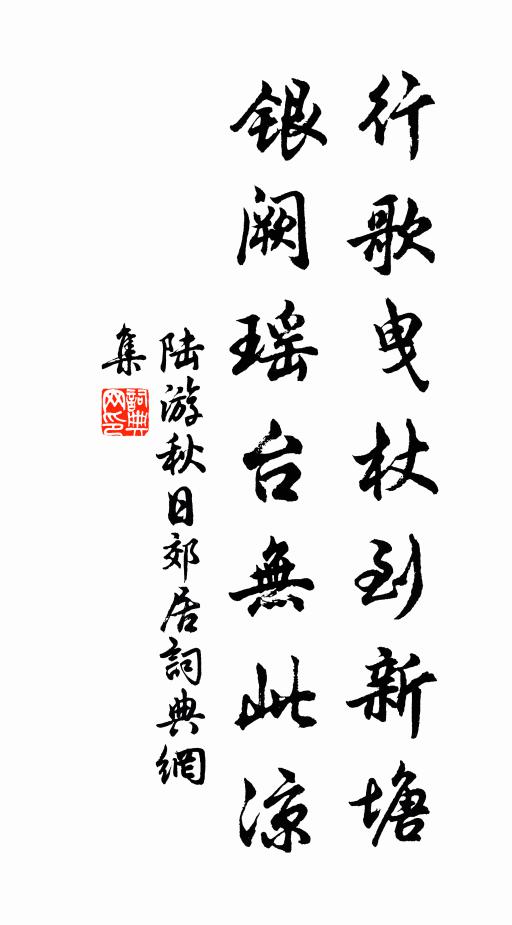 行歌曳杖到新塘
銀阙瑶台無此凉
陆游秋日郊居詞典網
集
詞典网印